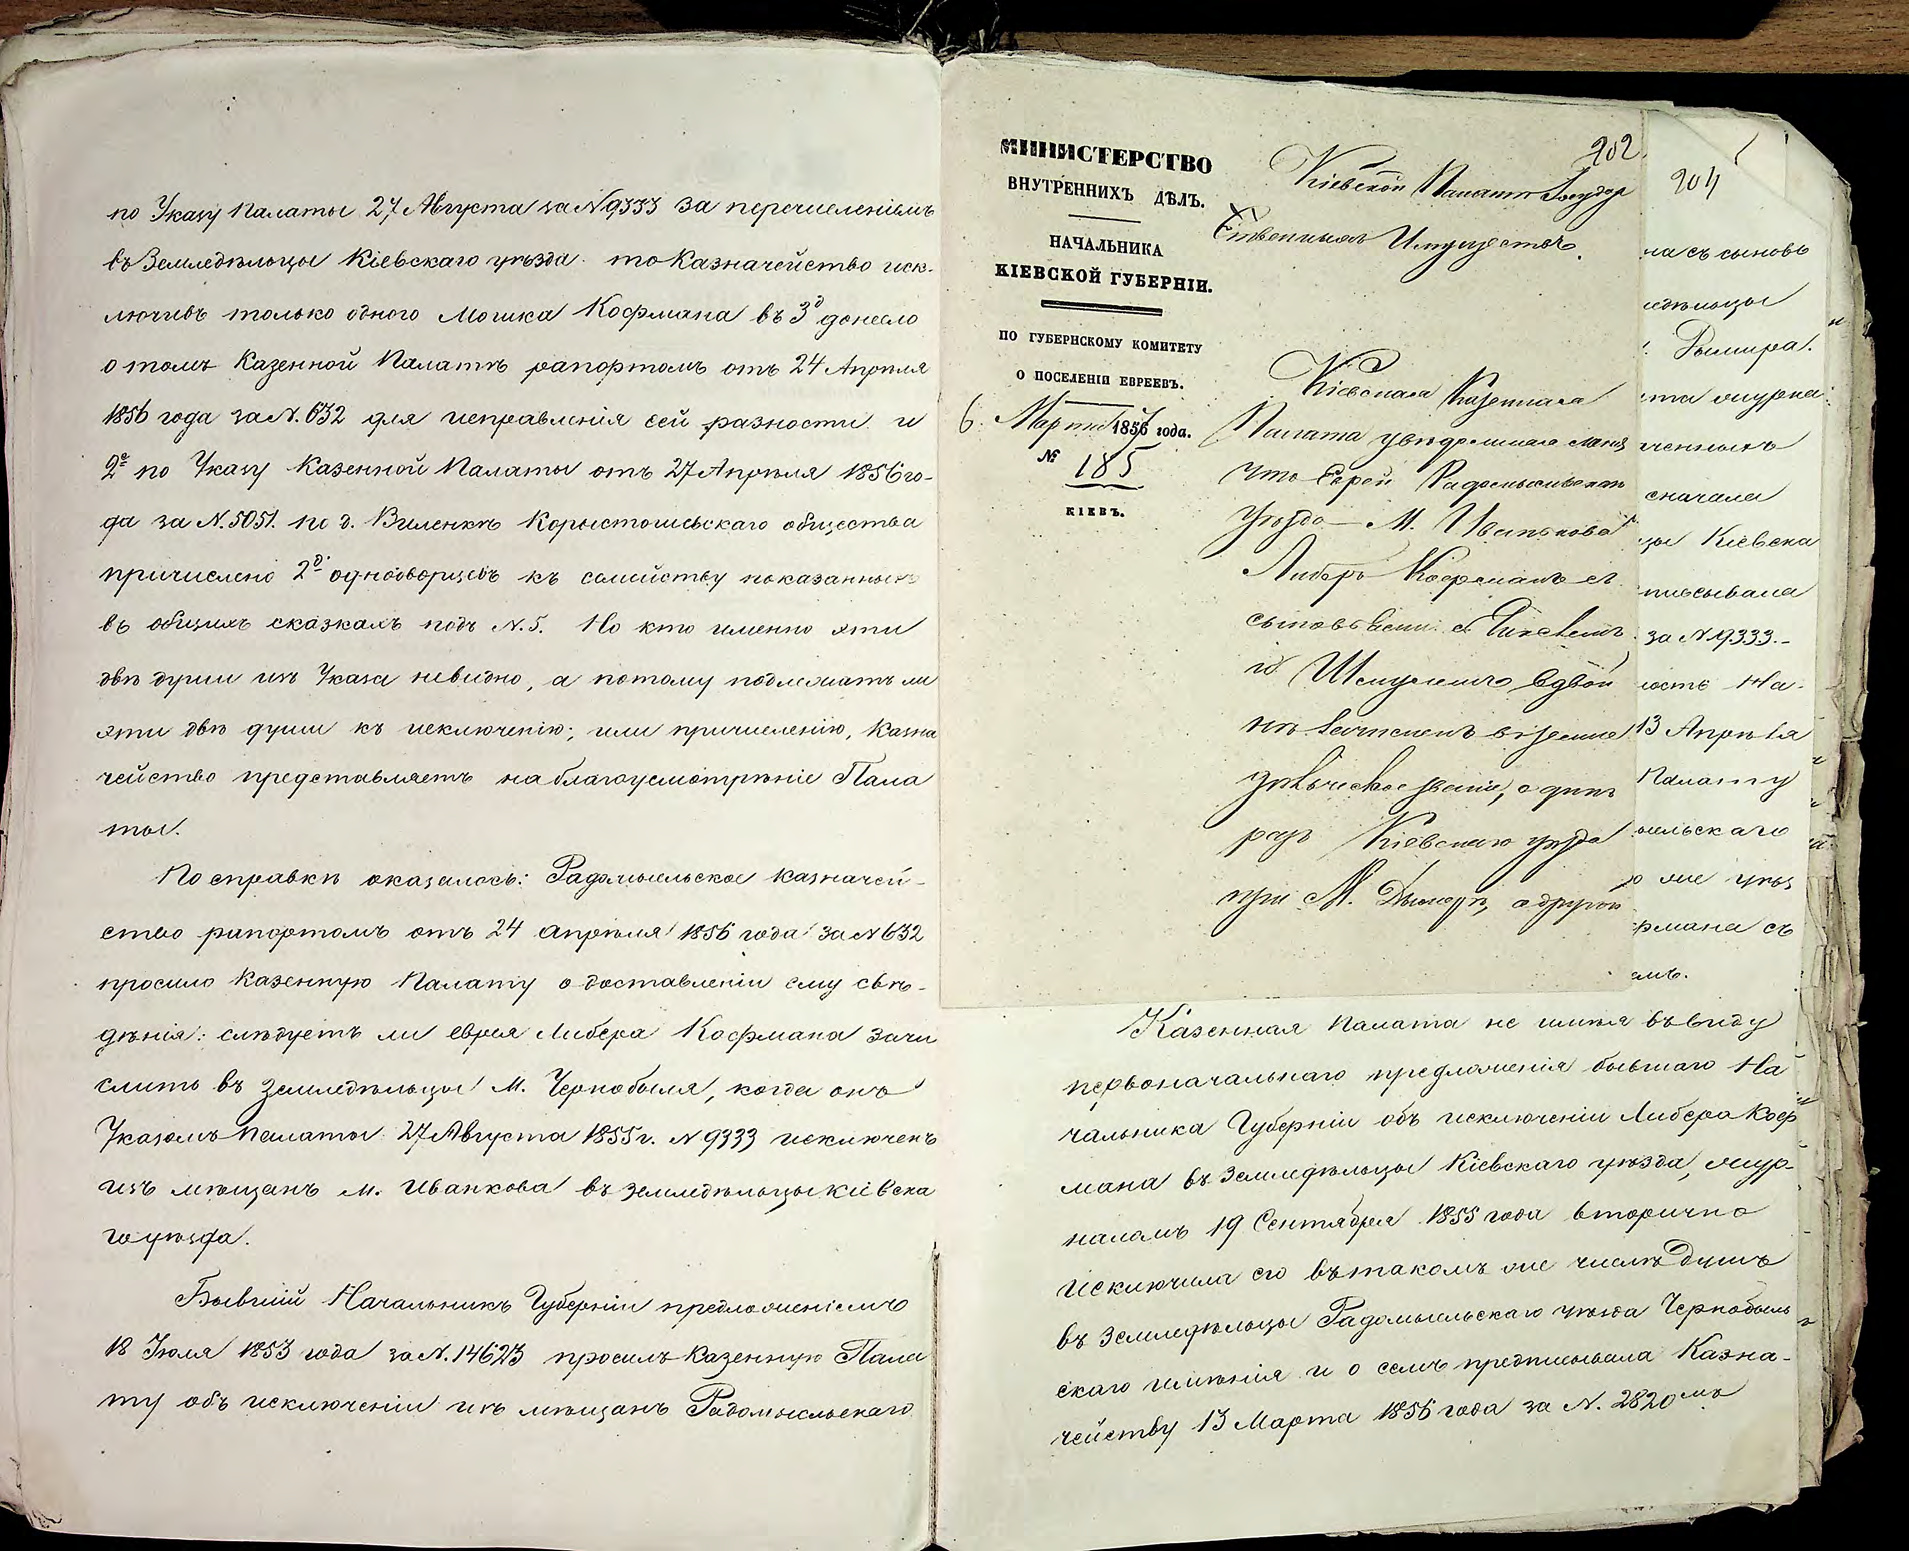 по Указу Палаты 27 Августа за N 9333 за перечисленіемъ
въ Земледѣльцы Кіевскаго уѣзда то Казначейство иск-
лючивъ только одного Мошка Кофмана въ 3д донесло
о томъ Казенной Палатѣ рапортомъ отъ 24 Апрѣля
1856 года за N. 632 для исправленія сей разности и
2е по Указу Казенной Палаты отъ 27 Апрѣля 1856 го-
да за N. 5051. по д. Виленкѣ Корыстошевскаго общества
причислено 2д однодворцевъ къ семейству показанному
въ общихъ сказкахъ подъ N. 5. Но кто именно эти
двѣ души изъ Указа невидно, а потому подлежатъ ли
эти двѣ души къ исключенію; или причисленію, Казна
чейство представляетъ на благоусмотрѣніе Пала
ты.
По справкѣ оказалось: Радомысльское казначей-
ство рапортомъ отъ 24 Апрѣля 1856 года за N 632
просило Казенную Палату о доставленіи ему свѣ-
дѣнія: слѣдуетъ ли еврея Либера Кофмана зачи
слить въ Земледѣльцы М. Чернобыля, когда онъ
Указомъ Палаты 27 Августа 1855 г. N 9333 исключенъ
изъ мѣщанъ м. Иванкова въ Земледѣльцы Кіевска
го уѣзда.
Бывшій Начальникъ Губерніи предложеніемъ
18 Іюля 1853 года за N. 14623 просилъ Казенную Пала
ту объ исключеніи изъ мѣщанъ Радомысльскаго
202
МИНИСТЕРСТВО
ВНУТРЕННИХЪ ДѢЛЪ.
НАЧАЛЬНИКА
КІЕВСКОЙ ГУБЕРНІИ.
ПО ГУБЕРНСКОМУ КОМИТЕТУ
О ПОСЕЛЕНІИ ЕВРЕЕВЪ.
6. Марта 1856 года.
№ 185
КІЕВЪ.
Кіевской Палатѣ Государ
ственныхъ Имуществъ.
Кіевская Казенная
Палата увѣдомила меня
что Еврей Радомысльскаго
уѣзда М. Иванкова
Либеръ Кофманъ съ
сыновьями
и Шмулемъ
зачисленъ въ земле
дѣльческое званіе, одинъ
разъ Кіевскаго уѣзда
при М. Дымерѣ, а другой
204
ла съ сыновь
ледѣльцы
Дымира.
та журна
ченныхъ
сначала
цы Кіевска
писывала
за N 9333.-
ность На-
13 Апрѣля
Палату
ысльскаго
о же уѣз
фмана съ
амъ.
Казенная Палата не имѣя въ виду
первоначальнаго предложенія бывшаго На
чальника Губерніи объ исключеніи Либера Коф
мана въ Земледѣльцы Кіевскаго уѣзда, жур-
наломъ 19 Сентября 1855 года вторично
исключила его въ такомъ же числѣ душъ
въ Земледѣльцы Радомысльскаго уѣзда Чернобыль
скаго имѣнія и о семъ предписывала Казна-
чейству 13 Марта 1856 года за N. 2820мъ